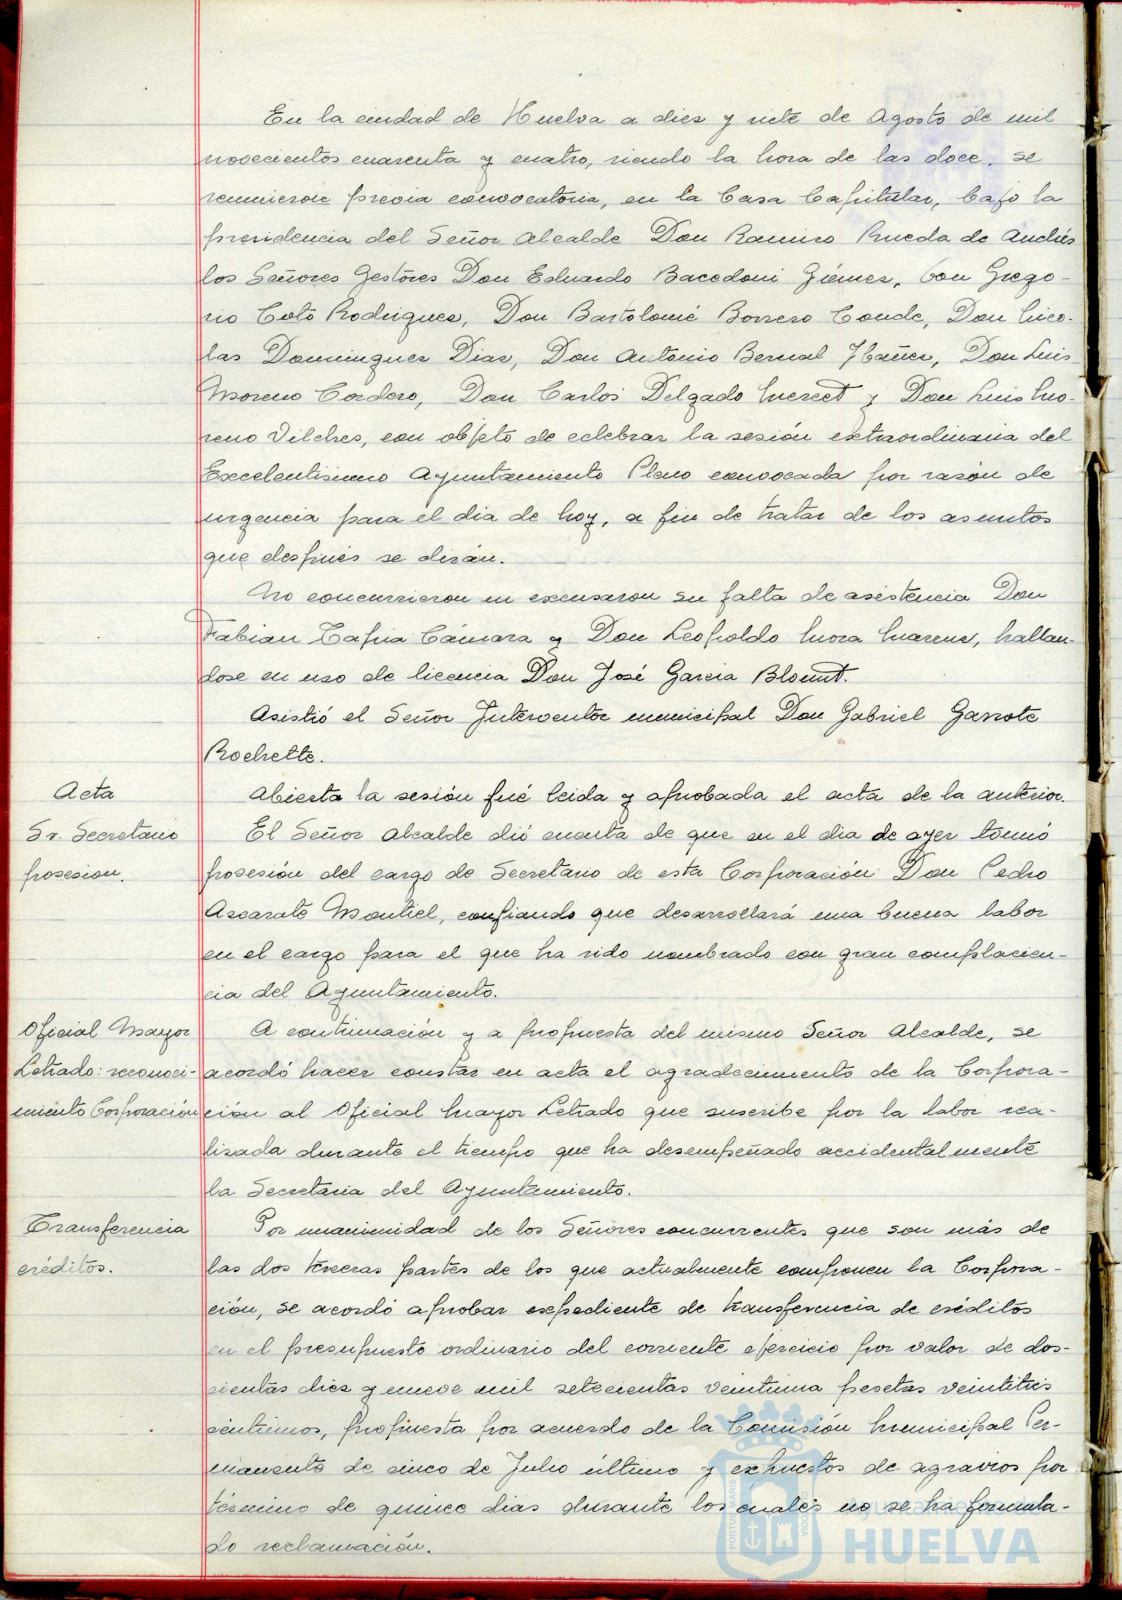 En la ciudad de Huelva a diez y siete de Agosto de mil
novecientos cuarenta y cuatro, siendo la hora de las doce, se
reunieron previa convocatoria, en la Casa Capitular, bajo la
presidencia del Señor Alcalde Don Ramiro Rueda de Andrés
los Señores Gestores Don Eduardo Bacedoni Giémez, Don Grego-
rio Coto Rodriguez, Don Bartolomé Borrero Conde, Don Nico-
las Dominguez Diaz, Don Antonio Bernal Ibañez, Don Luis
Moreno Cordero, Don Carlos Delgado Merect y Don Luis Mo-
reno Vilches, con objeto de celebrar la sesión extraordinaria del
Excelentisimo Ayuntamiento Pleno convocada por razón de
urgencia para el dia de hoy, a fin de tratar de los asuntos
que después se dirán.
No concurrieron ni excusaron su falta de asistencia Don
Fabian Tapia Cámara y Don Leopoldo Mora Marene, hallan-
dose en uso de licencia Don José Garcia Blount.
Asistió el Señor Interventor municipal Don Gabriel Garrote
Rochette.
Acta
Abierta la sesión fué leida y aprobada el acta de la anterior.
Sr. Secretario
posesion.
El Señor Alcalde dió cuenta de que en el dia de ayer tomó
posesión del cargo de Secretario de esta Corporación Don Pedro
Ascarate Montiel, confiando que desarrollará una buena labor
en el cargo para el que ha sido nombrado con gran complacen-
cia del Ayuntamiento.
Oficial Mayor
Letrado: reconoci-
miento Corporación
A continuación y a propuesta del mismo Señor Alcalde, se
acordó hacer constar en acta el agradecimiento de la Corpora-
ción al Oficial Mayor Letrado que suscribe por la labor rea-
lizada durante el tiempo que ha desempeñado accidentalmente
la Secretaria del Ayuntamiento.
Transferencia
créditos.
Por unanimidad de los Señores concurrentes que son más de
las dos terceras partes de los que actualmente componen la Corpora-
ción, se acordó aprobar expediente de transferencia de créditos
en el presupuesto ordinario del corriente ejercicio por valor de dos-
cientas diez y nueve mil setecientas veintiuna pesetas veintitrés
céntimos, propuesta por acuerdo de la Comisión Municipal Per-
manente de cinco de Julio último y expuestos de agravios por
término de quince dias durante los cuales no se ha formula-
do reclamación.
HUELVA